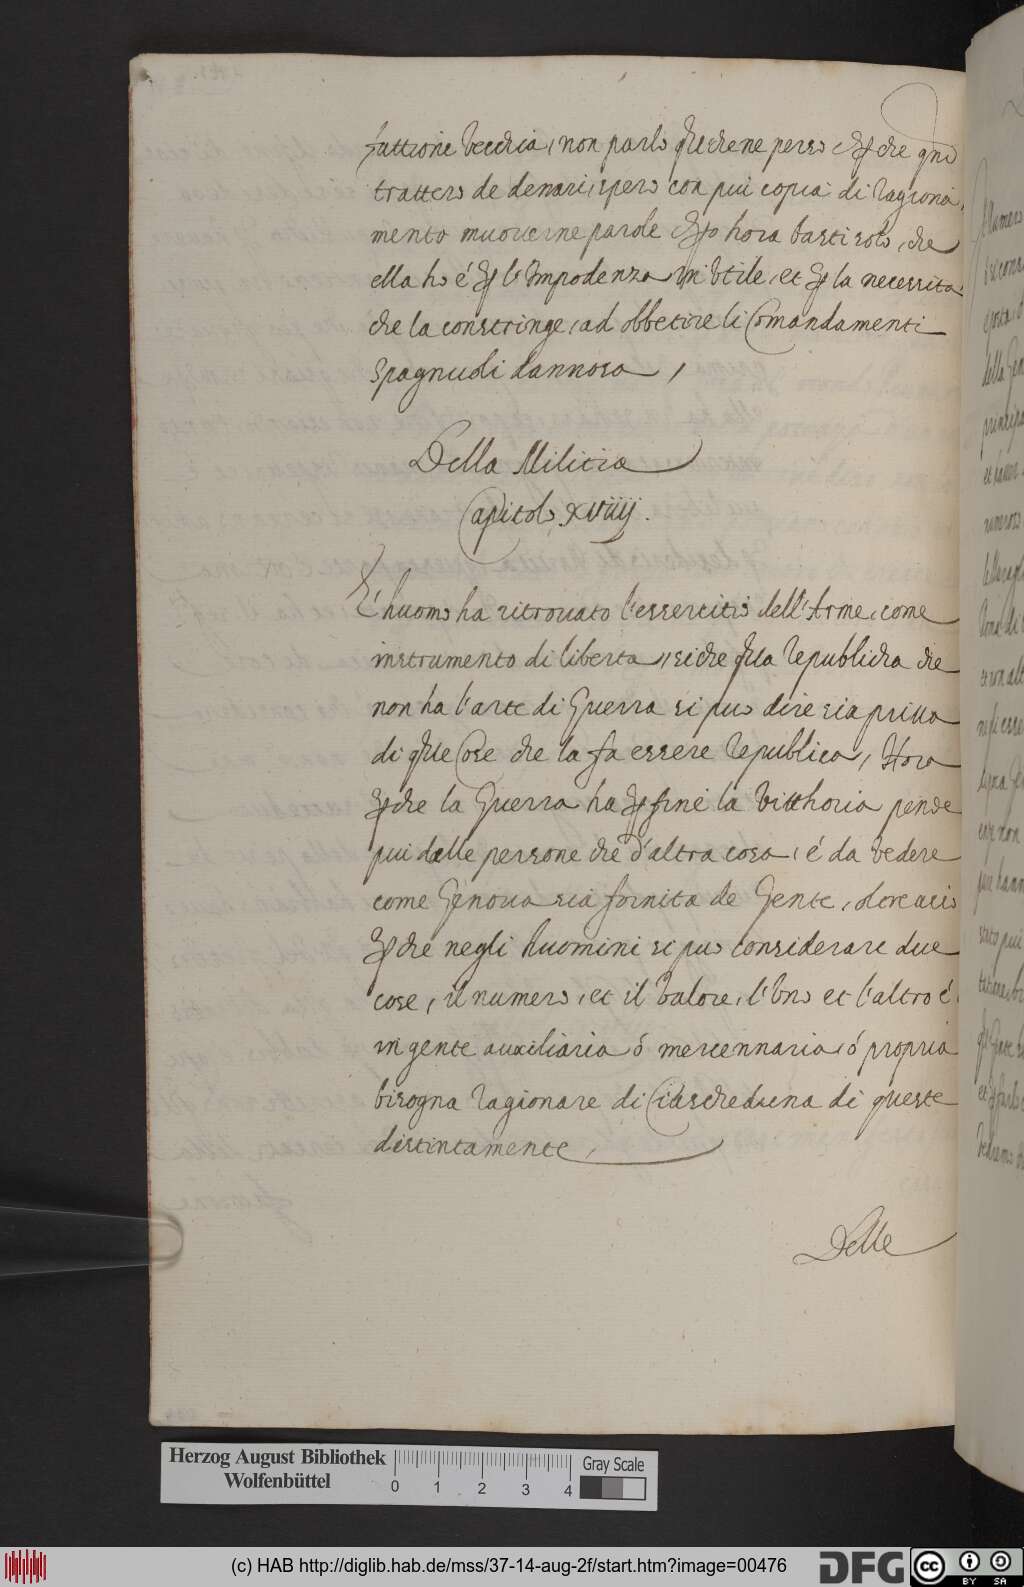 fattione vecchia, non parlo
trattero de denari, spero con piu copia di ragiona
mento muoverne parole hora basti solo, che
ella ho é l'Impodenza inutile, et la necessita
che la constringe, ad obbetire li Comandamenti
spagnuoli dannosa,
Della Militia
Capitolo XVIIII.
L'huomo ha ritrouato l'essercitio dell'Arme, come
instrumento di liberta, siche qlla Republicha che
non ha l'arte di Guerra si puo dire sia priua
di qlle Cose che la fa essere Republica, Hora
che la Guerra ha fine la vitthoria pende
piu dalle persone che d'altra cosa, é da vedere
come Genoua sia fornita de Gente,
che negli huomini si puo considerare due
cose, il numero, et il valore, l'Uno et l'altro é
in gente auxiliaria ó mercennaria ó propria
bisogna ragionare di Ciascheduna di queste
distintamente,
Delle
Herzog August Bibliothek
Wolfenbüttel
0 1 2 3 4
Gray Scale
(c) HAB http://diglib.hab.de/mss/37-14-aug-2f/start.htm?image=00476
DFG
CC BY SA